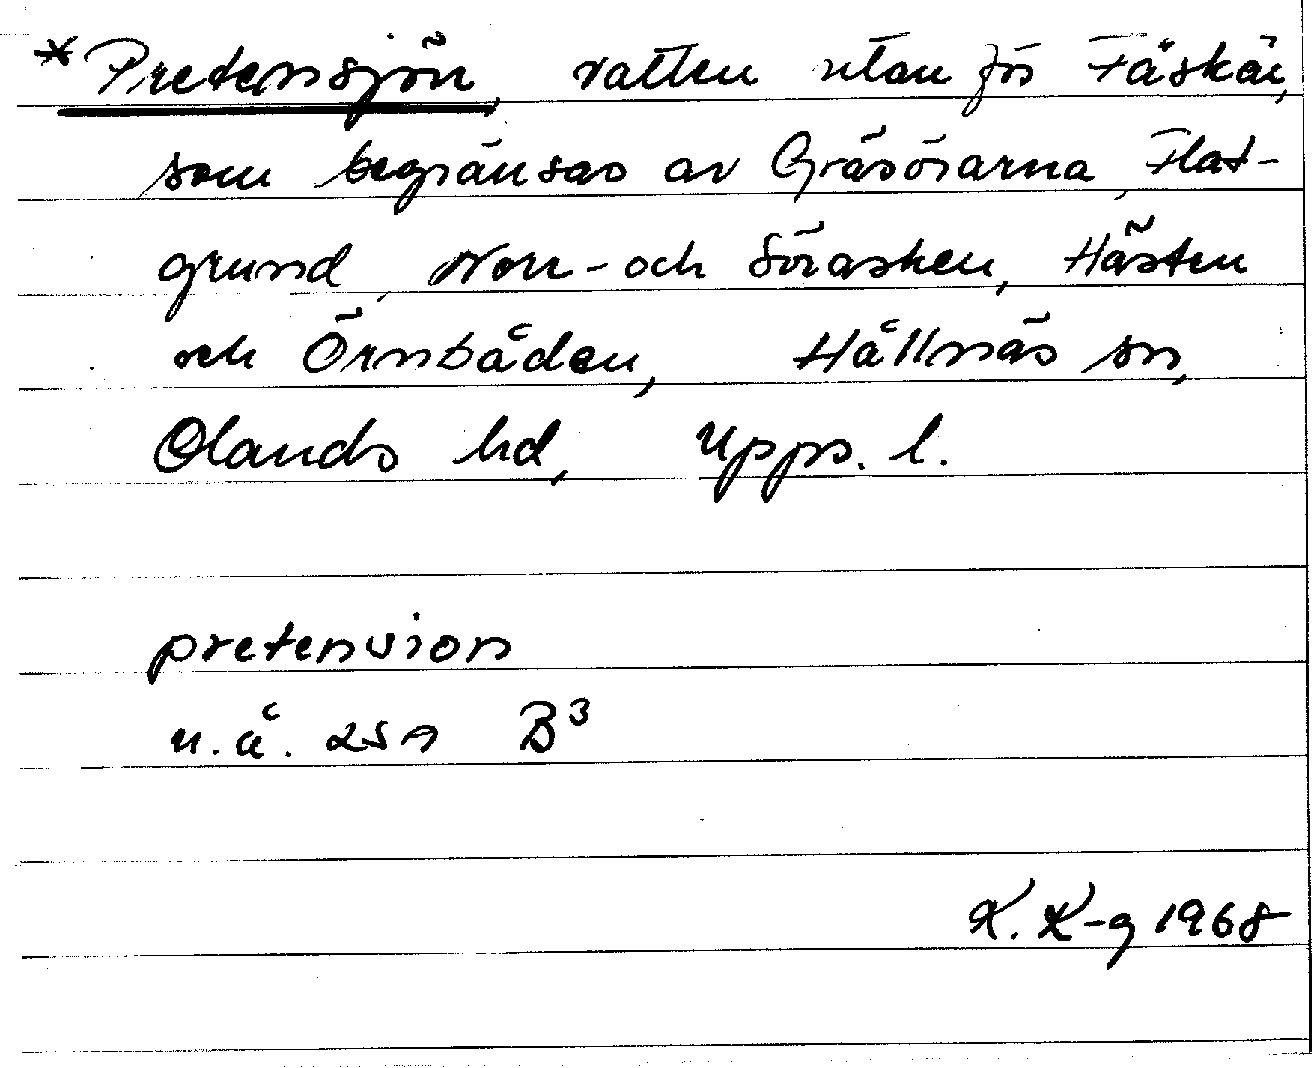 * Pretensjön, vatten utanför Fäskär,
som begränsas av Gräsörarna, Flat-
grund, Norr- och Sörasken, Hästen
och Örnbåden, Hållnäs sn,
Olands hd, Upps. l.
pretension
u.å. 2sn B³
K. K-g 1968